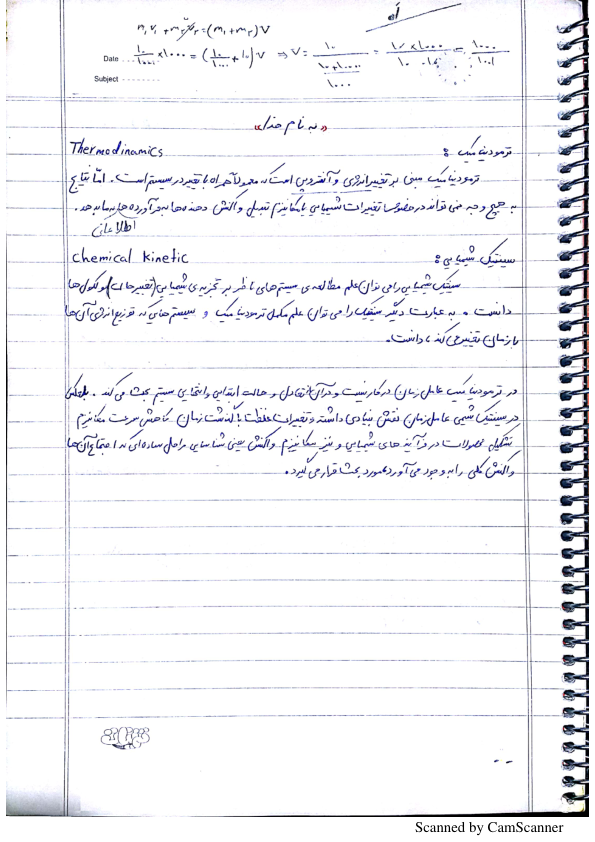 m₁v₁ + m₂v₂ = (m₁+m₂)V
Date ۱۰/۱۰۰۰ ×۱۰۰۰ = (۱۰/۱۰۰۰ + ۱۰) V ⇒ V =
Subject
«به نام خدا»
Thermodinamics ترمودینامیک :
ترمودینامیک مبنی بر تغییر انرژی و آنتروپی است که معمولاً همراه با تغییر در سیستم است. اما نتایج
به هیچ وجه نمی تواند در خصوص تغییرات شیمیایی یا مکانیزم تبدیل واکنش دهنده ها به فرآورده ها به ما بدهد.
اطلاعاتی
chemical kinetic سینتیک شیمیایی :
سینتیک شیمیایی را می توان علم مطالعه ی سیستم های ناظر بر تجزیه ی شیمیایی (تغییر حالت) مولکول ها
دانست و به عبارت دیگر سینتیک را می توان علم مکمل ترمودینامیک و سیستم هایی که توزیع انرژی آن ها
با زمان تغییر می کند، دانست.
در ترمودینامیک عامل زمان در کار نیست و در آن از تعادل و حالت ابتدایی و انتهایی سیستم بحث می کند.
در سینتیک شیمی عامل زمان نقش بنیادی داشته و تغییرات غلظت با گذشت زمان سرعت مکانیزم
تشکیل محصولات در فرآیند های شیمیایی و نیز مکانیزم واکنش یعنی شناسایی مراحل ساده ای که اجتماع آن ها
واکنش کلی را به وجود می آورد مورد بحث قرار می گیرد.
Scanned by CamScanner